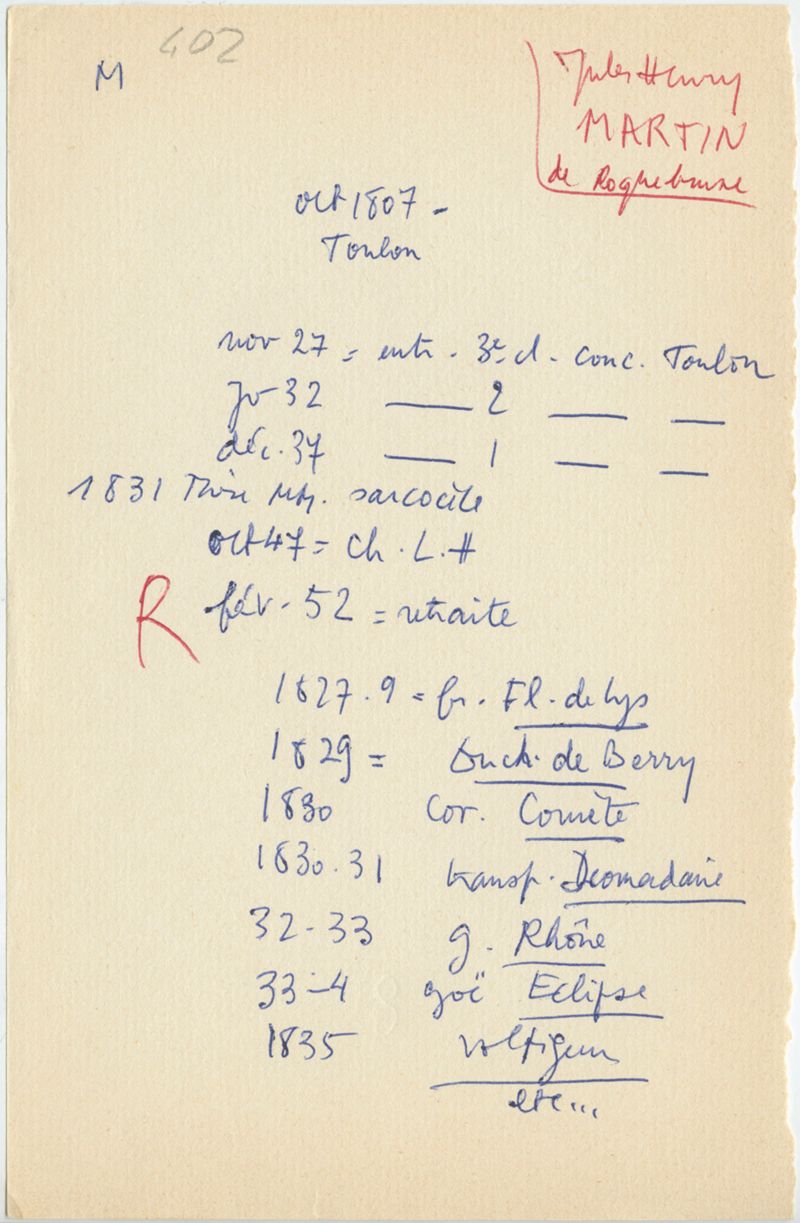 402
M
Jules Henry
MARTIN
de Roquebrune
oct 1807 -
Toulon
nov 27 = entr. 3e cl. conc. Toulon
jv 32 — 2 — —
déc. 37 — 1 — —
1831 Thèse Mtp. sarcocèle
oct 47 = Ch. L. H
R
fév. 52 = retraite
1827.9 = fr. Fl. de Lys
1829 = Duch. de Berry
1830 Cor. Comète
1830.31 transp. Dromadaire
32-33 g. Rhône
33-4 goë Eclipse
1835 Voltigeur
etc...